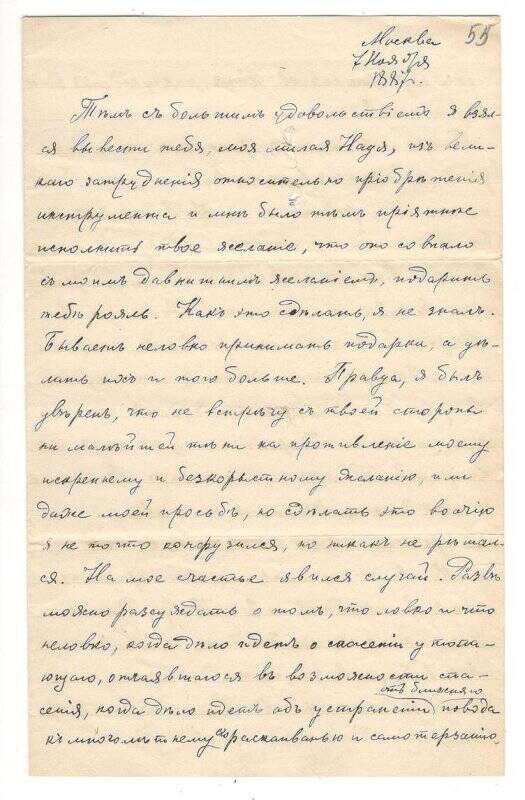 55
Москва
7 Ноября
1887г.
Тѣмъ съ большимъ удовольствіемъ я взял-
ся вывести тебя, моя милая Надя, изъ вели-
каго затрудненія относительно пріобрѣтенія
инструмента и мнѣ было тѣмъ пріятнѣе
исполнить твое желаніе, что оно совпало
съ моимъ давнишнимъ желаніемъ, подарить
тебѣ рояль. Какъ это сдѣлать, я не зналъ.
Бываетъ неловко принимать подарки, а дѣ-
лать ихъ и того больше. Правда, я былъ
увѣренъ, что не встрѣчу съ твоей стороны
ни малѣйшей тѣни на противленіе моему
искреннему и безкорыстному желанію, или
даже моей просьбѣ, но сдѣлать это воочію
я не то что конфузился, но никакъ не рѣшал-
ся. На мое счастье явился случай. Развѣ
можно разсуждать о томъ, что ловко и что
неловко, когда дѣло идетъ о спасеніи утопа-
ющаго, отчаявшагося въ возможности спа-
сенія, когда дѣло идетъ объ устраненіи отъ ближняго повода
къ многолѣтнему раскаиванью и самотерзанію,